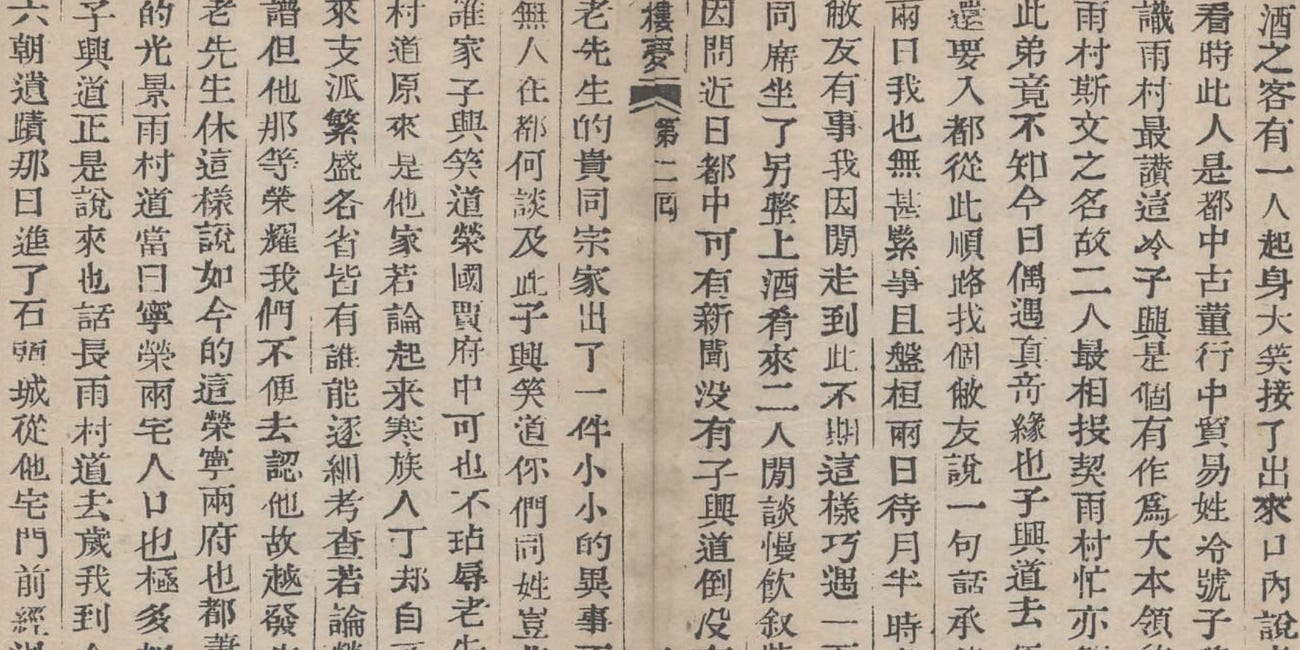 酒之客有一人起身大笑接了出來口內說
看時此人是都中古董行中貿易姓冷號子
識雨村最讚這冷子興是個有作爲大本領
雨村斯文之名故二人最相投契雨村忙亦
此弟竟不知今日偶遇真奇緣也子興道去
還要入都從此順路找個敝友說一句話承
兩日我也無甚緊事且盤桓兩日待月半時
敝友有事我因閒走到此不期這樣巧遇一
同席坐了另整上酒肴來二人閒談慢飲叙
因問近日都中可有新聞没有子興道倒没
樓夢 第二回
老先生的貴同宗家出了一件小小的異事
無人在都何談及此子興笑道你們同姓豈
誰家子興笑道榮國賈府中可也不玷辱老
村道原來是他家若論起来寒族人丁却自
來支派繁盛各省皆有誰能逐細考查若論
譜但他那等榮耀我們不便去認他故越發
老先生休這樣說如今的這榮寧兩府也都蕭
的光景雨村道當日寧榮兩宅人口也極多
子興道正是說來也話長雨村道去歲我到
六朝遺蹟那日進了石頭城從他宅門前經